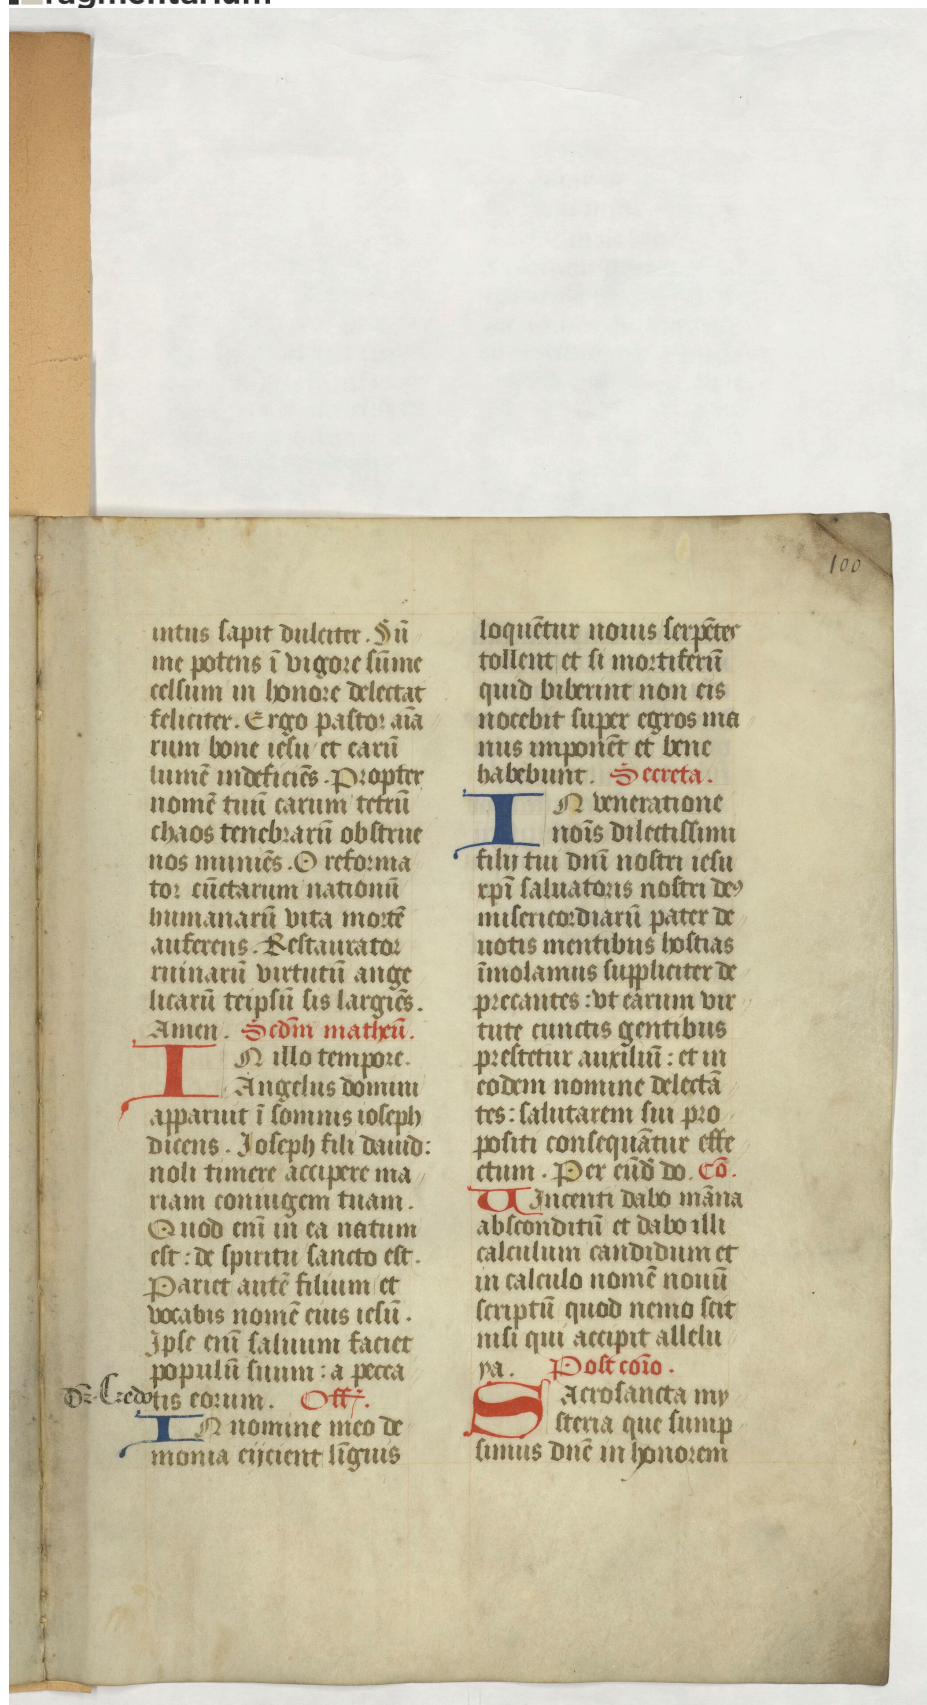 fragmentarium
100
intus sapit dulciter. Sū
me potens ī vigore sūme
celsum in honore delectat
feliciter. Ergo pastor aīa
rum bone iesu et earū
lumē indeficiēs. Propter
nomē tuū carum tetrū
chaos tenebrarū obstrue
nos muniēs. O reforma
tor cūctarum nationū
humanarū vita mortē
auferens. Restaurator
ruinarū virtutū ange
licarū teipsū sis largiēs.
Amen. Scdm̄ matheū.
IN illo tempore.
Angelus domini
apparuit ī somnis ioseph
dicens. Ioseph fili dauid:
noli timere accipere ma
riam coniugem tuam.
Quod enī in ea natum
est: de spiritu sancto est.
Pariet autē filium et
vocabis nomē eius iesū.
Ipse enī saluum faciet
populū suum: a pecca
Dr̄ Credo
tis eorum. Off.
IN nomine meo de
monia eijcient līguis
loquētur nouis serpētes
tollent et si mortiferū
quid biberint non eis
nocebit super egros ma
nus imponēt et bene
habebunt. Secreta.
IN veneratione
noīs dilectissimi
filij tui dnī nostri iesu
xpī saluatoris nostri deꝰ
misericordiarū pater de
uotis mentibus hostias
īmolamus suppliciter de
precantes: vt earum vir
tute cunctis gentibus
prestetur auxiliū: et in
eodem nomine delectā
tes: salutarem sui pro
positi consequātur effe
ctum. Per eūd̄ do. Cō.
Uincenti dabo māna
absconditū et dabo illi
calculum candidum et
in calculo nomē nouū
scriptū quod nemo scit
nisi qui accipit allelu
ya. Post coīo.
Sacrosancta my
steria que sump
simus dnē in honorem